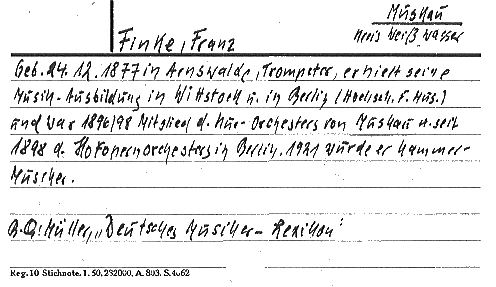 Muskau
Kreis Weißwasser
Finke, Franz
Geb. 24. 12. 1877 in Arnswalde, Trompeter, erhielt seine
Musik-Ausbildung in Wittstock u. in Berlin (Hochsch. f. Mus.)
und war 1896/98 Mitglied d. Kur-Orchesters von Muskau u. seit
1898 d. Hofopernorchesters in Berlin. 1921 wurde er Kammer-
Musiker.
Müller, "Deutsches Musiker-Lexikon"
Reg. 10 Stichnote. 1. 50, 232000, A. 803. S. 4662